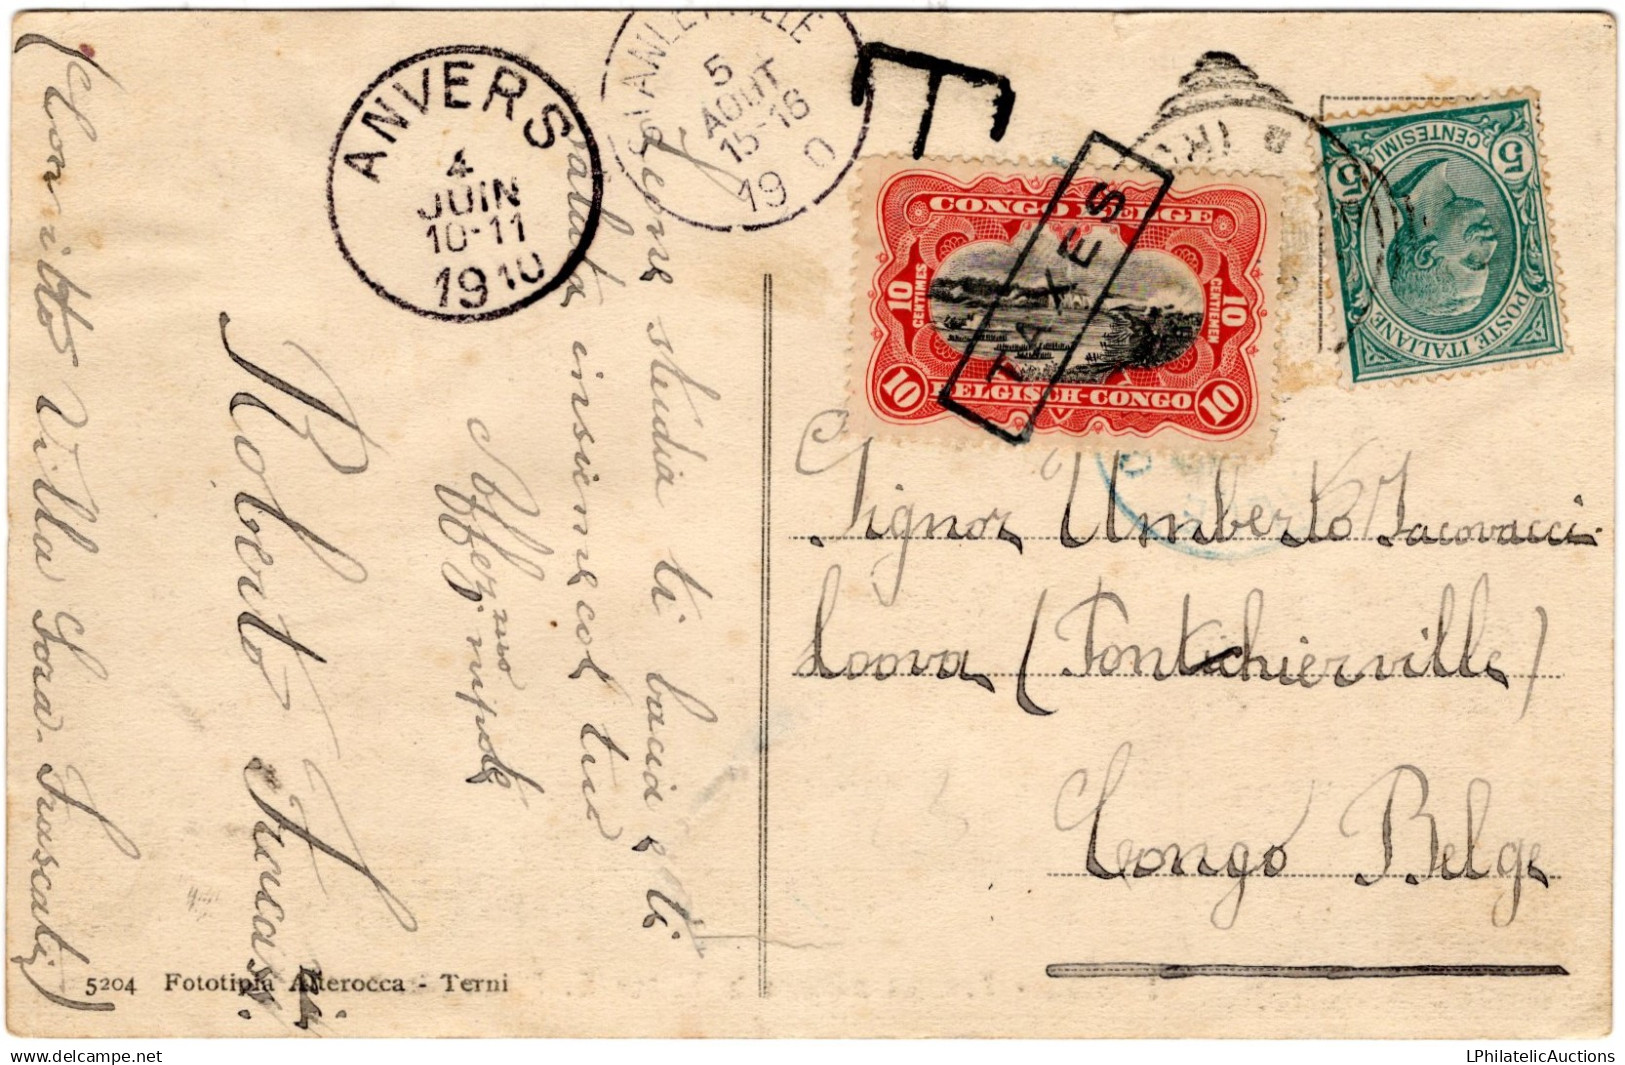 ANVERS
4
JUIN
10-11
1910
STANLEYVILLE
5
AOUT
15-16
19 0
T
TAXES
CONGO BELGE
10
CENTIMES
10
CENTIEMEN
10
BELGISCH-CONGO
10
5
CENTESIMI
5
POSTE ITALIANE
Signor Umberto Iacovacci
Loova (Pontichierville)
Congo Belge
studia ti bacia e ti
saluta insieme col tuo
Affez.mo nipote
Roberto Fracassi
(Convitto Villa Sora - Frascati)
5204 Fototipia Alterocca - Terni
LPhilatelicAuctions
delcampe.net